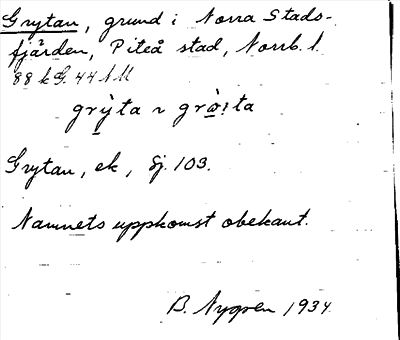 Grytan, grund i Norra Stads-
fjärden, Piteå stad, Norrb. l.
88 k G. 44
grỳta ~ 
Grytan, ek, Sj. 103.
Namnets uppkomst obekant.
B. Nygren 1934